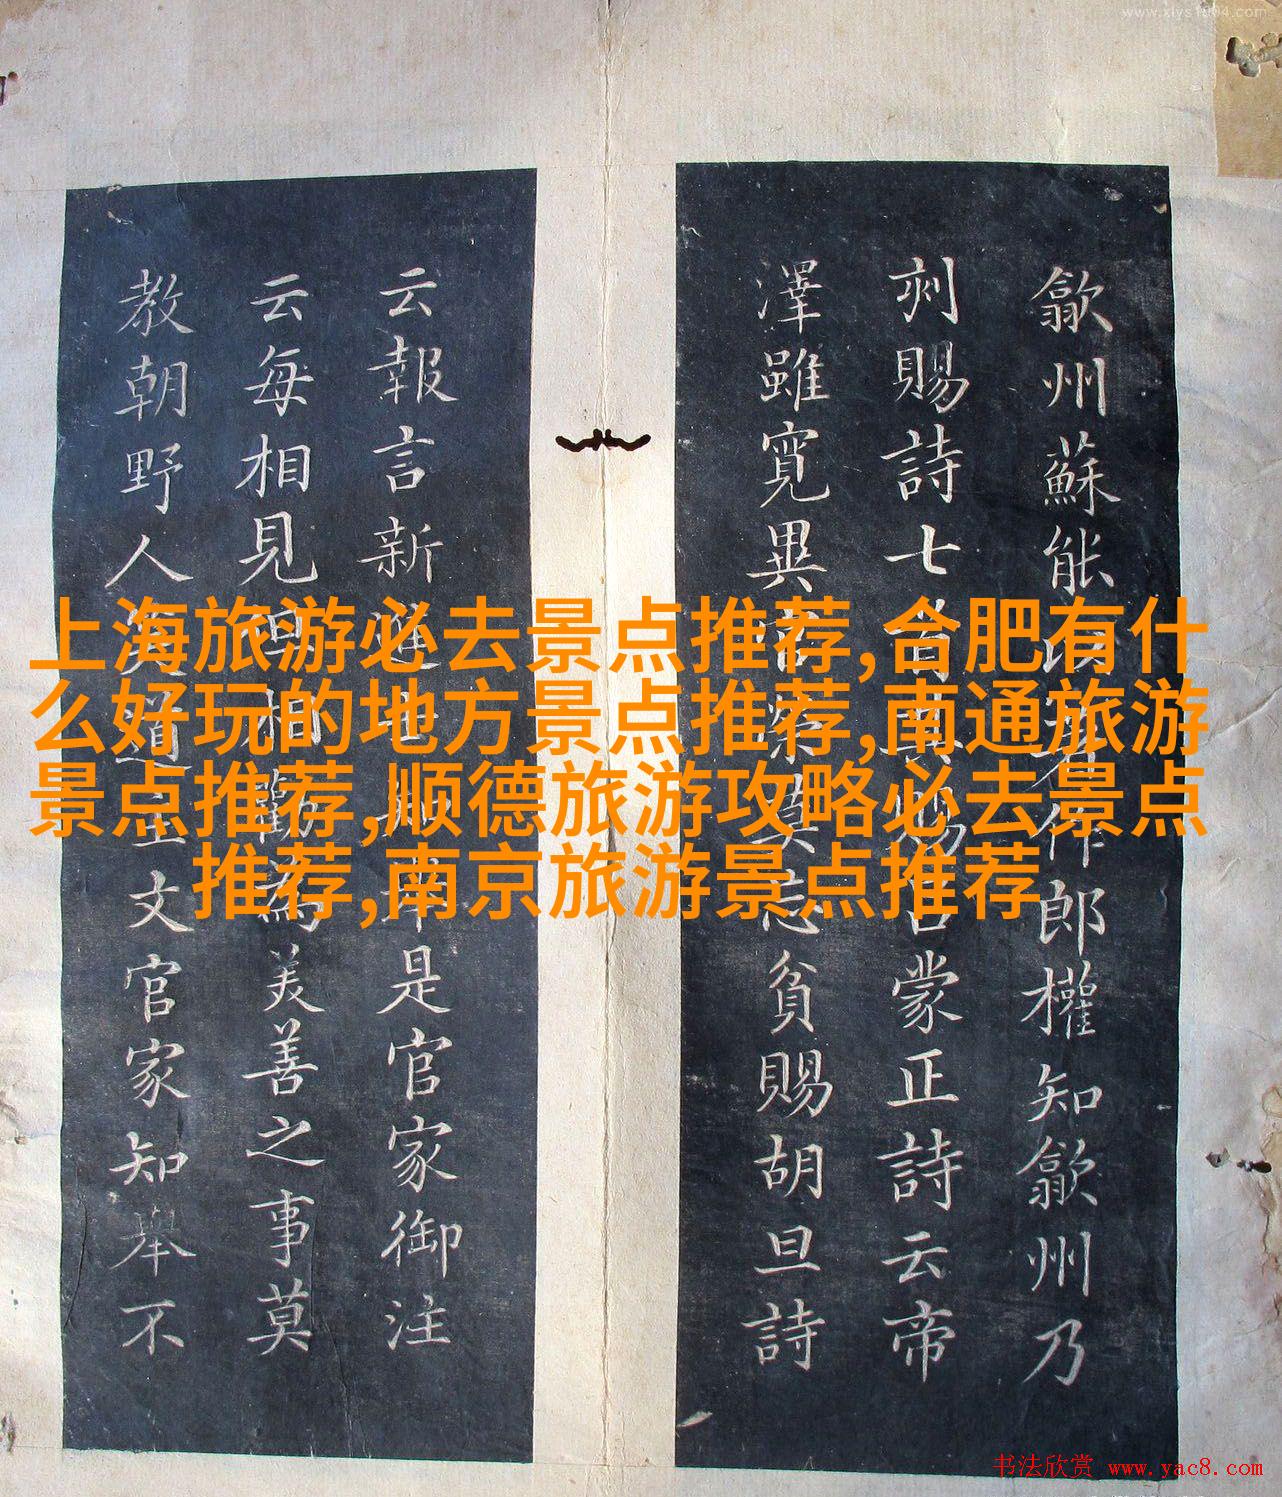 www.xiysf004.com
歙州蘇能以著作郎權知歙州乃
刻賜詩七首其賜呂蒙正詩云帝
澤雖寬異莫忘貧賜胡旦詩
云報言新進是官家御注
云每相見相勸為美善之事莫
教朝野人笑道主文官家知舉不
上海旅游必去景点推荐,合肥有什
么好玩的地方景点推荐,南通旅游
景点推荐,顺德旅游攻略必去景点
推荐,南京旅游景点推荐
书法欣赏 www.yac8.com